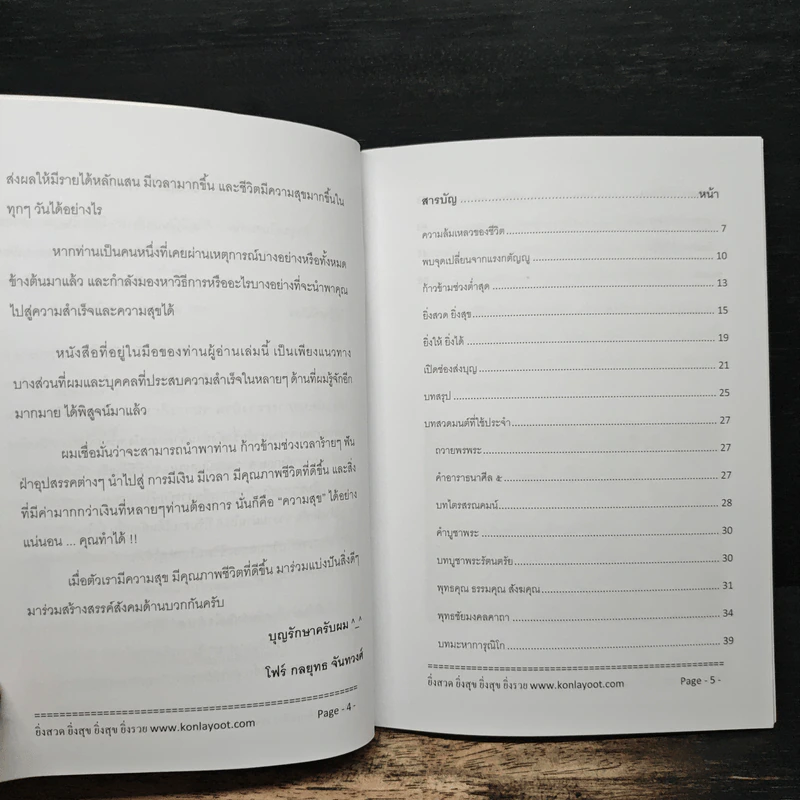 ส่งผลให้มีรายได้หลักแสน มีเวลามากขึ้น และชีวิตมีความสุขมากขึ้นใน
ทุกๆ วันได้อย่างไร
หากท่านเป็นคนหนึ่งที่เคยผ่านเหตุการณ์บางอย่างหรือทั้งหมด
ข้างต้นมาแล้ว และกำลังมองหาวิธีการหรืออะไรบางอย่างที่จะนำพาคุณ
ไปสู่ความสำเร็จและความสุขได้
หนังสือที่อยู่ในมือของท่านผู้อ่านเล่มนี้ เป็นเพียงแนวทาง
บางส่วนที่ผมและบุคคลที่ประสบความสำเร็จในหลายๆ ด้านที่ผมรู้จักอีก
มากมาย ได้พิสูจน์มาแล้ว
ผมเชื่อมั่นว่าจะสามารถนำพาท่าน ก้าวข้ามช่วงเวลาร้ายๆ ฟัน
ฝ่าอุปสรรคต่างๆ นำไปสู่ การมีเงิน มีเวลา มีคุณภาพชีวิตที่ดีขึ้น และสิ่ง
ที่มีค่ามากกว่าเงินที่หลายๆท่านต้องการ นั่นก็คือ "ความสุข" ได้อย่าง
แน่นอน ... คุณทำได้ !!
เมื่อตัวเรามีความสุข มีคุณภาพชีวิตที่ดีขึ้น มาร่วมแบ่งปันสิ่งดีๆ
มาร่วมสร้างสรรค์สังคมด้านบวกกันครับ
บุญรักษาครับผม ^_^
โฟร์ กลยุทธ จันทวงศ์
ยิ่งสวด ยิ่งสุข ยิ่งสุข ยิ่งรวย www.konlayoot.com Page - 4 -
สารบัญ ........................................................หน้า
ความล้มเหลวของชีวิต........................................................7
พบจุดเปลี่ยนจากแรงกตัญญู........................................................10
ก้าวข้ามช่วงต่ำสุด........................................................13
ยิ่งสวด ยิ่งสุข........................................................15
ยิ่งให้ ยิ่งได้........................................................19
เปิดช่องส่งบุญ........................................................21
บทสรุป........................................................25
บทสวดมนต์ที่ใช้ประจำ........................................................27
ถวายพรพระ........................................................27
คำอาราธนาศีล ๕........................................................27
บทไตรสรณคมน์........................................................28
คำบูชาพระ........................................................30
บทบูชาพระรัตนตรัย........................................................30
พุทธคุณ ธรรมคุณ สังฆคุณ........................................................31
พุทธชัยมงคลคาถา........................................................34
บทมะหาการุณิโก........................................................39
ยิ่งสวด ยิ่งสุข ยิ่งสุข ยิ่งรวย www.konlayoot.com Page - 5 -